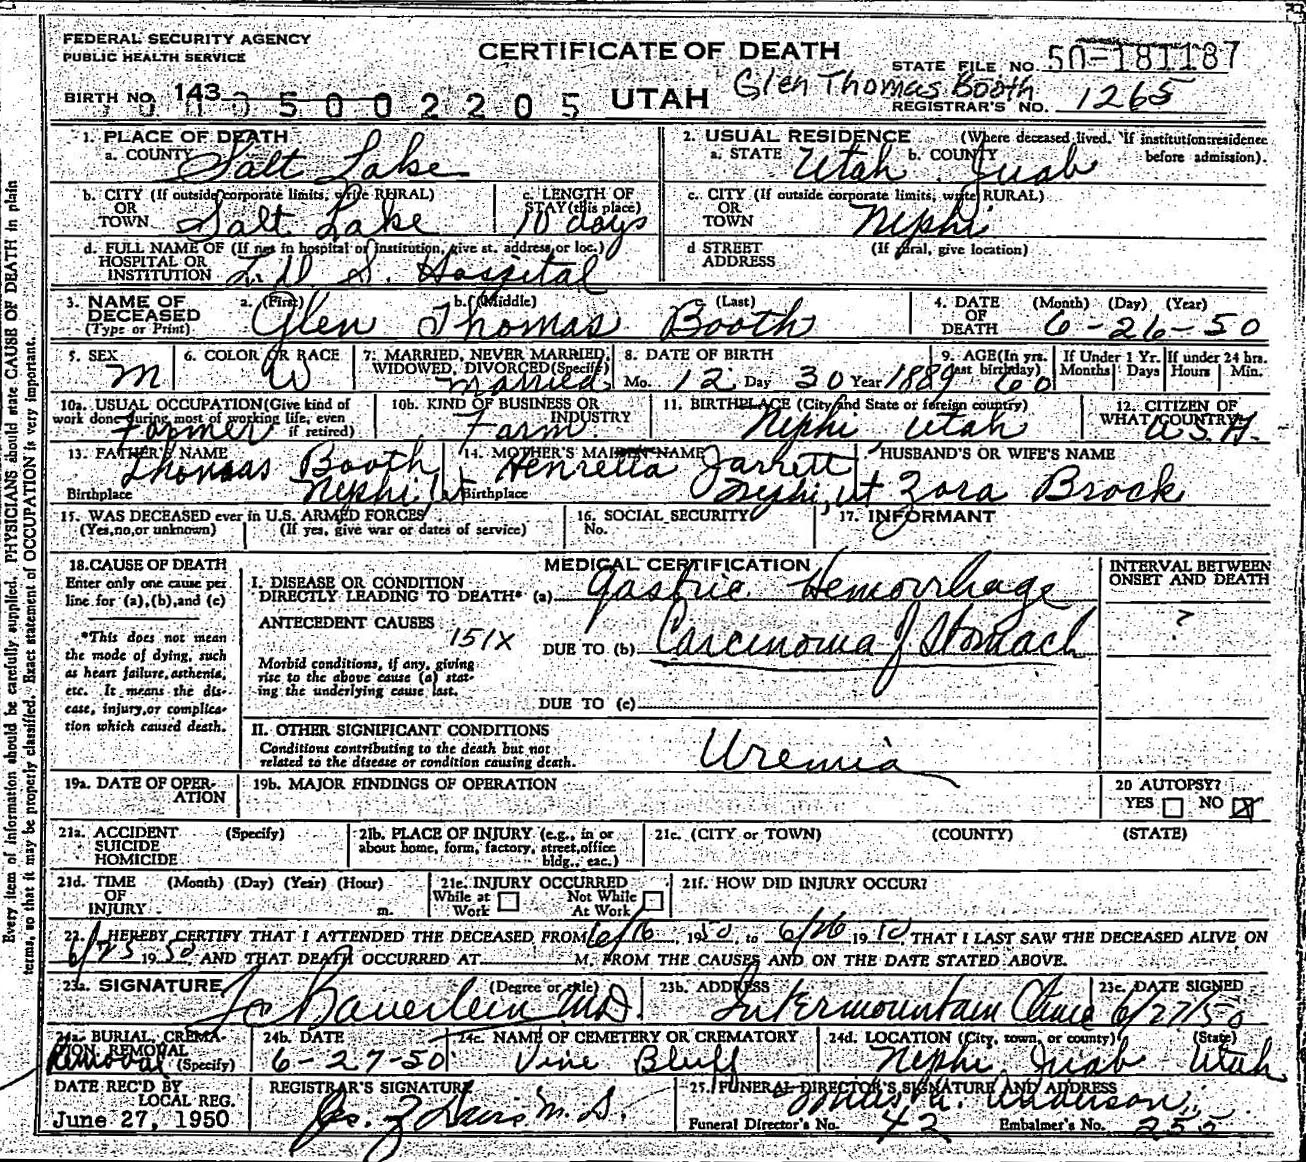 FEDERAL SECURITY AGENCY
PUBLIC HEALTH SERVICE
CERTIFICATE OF DEATH
STATE FILE NO. 50-181187
Glen Thomas Booth
BIRTH NO. 143 0 5 0 0 2 2 0 5
UTAH
REGISTRAR'S NO. 1265
1. PLACE OF DEATH
a. COUNTY Salt Lake
2. USUAL RESIDENCE (Where deceased lived. If institution:residence before admission).
a. STATE Utah b. COUNTY Juab
b. CITY (If outside corporate limits, write RURAL)
OR
TOWN Salt Lake
c. LENGTH OF
STAY (this place)
10 days
c. CITY (If outside corporate limits, write RURAL)
OR
TOWN Nephi
d. FULL NAME OF (If not in hospital or institution, give st. address or loc.)
HOSPITAL OR
INSTITUTION L.D.S. Hospital
d STREET (If rural, give location)
ADDRESS
3. NAME OF DECEASED
(Type or Print)
a. (First) b. (Middle) (Last)
Glen Thomas Booth
4. DATE OF DEATH (Month) (Day) (Year)
6-26-50
5. SEX
M
6. COLOR OR RACE
W
7. MARRIED, NEVER MARRIED, WIDOWED, DIVORCED (Specify)
Married
8. DATE OF BIRTH
Mo. 12 Day 30 Year 1889
9. AGE (In yrs. last birthday)
60
If Under 1 Yr. Months Days
If under 24 hrs. Hours Min.
10a. USUAL OCCUPATION (Give kind of work done during most of working life, even if retired)
Farmer
10b. KIND OF BUSINESS OR INDUSTRY
Farm
11. BIRTHPLACE (City and State or foreign country)
Nephi Utah
12. CITIZEN OF WHAT COUNTRY?
U.S.A.
13. FATHER'S NAME
Thomas Booth
Birthplace Nephi Ut
14. MOTHER'S MAIDEN NAME
Henretta Jarrett
Birthplace Nephi, Ut
HUSBAND'S OR WIFE'S NAME
Zora Brock
15. WAS DECEASED ever in U.S. ARMED FORCES
(Yes,no,or unknown) (If yes, give war or dates of service)
16. SOCIAL SECURITY
No.
17. INFORMANT
18. CAUSE OF DEATH
Enter only one cause per
line for (a),(b),and (c)
*This does not mean
the mode of dying, such
as heart failure, asthenia,
etc. It means the dis-
ease, injury, or complica-
tion which caused death.
MEDICAL CERTIFICATION
I. DISEASE OR CONDITION
DIRECTLY LEADING TO DEATH* (a) Gastric Hemorrhage
ANTECEDENT CAUSES 151X
DUE TO (b) Carcinoma of Stomach
Morbid conditions, if any, giving
rise to the above cause (a) stat-
ing the underlying cause last.
DUE TO (c)
II. OTHER SIGNIFICANT CONDITIONS
Conditions contributing to the death but not
related to the disease or condition causing death.
Uremia
INTERVAL BETWEEN
ONSET AND DEATH
?
19a. DATE OF OPER-
ATION
19b. MAJOR FINDINGS OF OPERATION
20 AUTOPSY?
YES NO X
21a. ACCIDENT (Specify)
SUICIDE
HOMICIDE
21b. PLACE OF INJURY (e.g., in or
about home, form, factory, street, office
bldg., eac.)
21c. (CITY or TOWN) (COUNTY) (STATE)
21d. TIME (Month) (Day) (Year) (Hour)
OF
INJURY m.
21e. INJURY OCCURRED
While at Work Not While At Work
21f. HOW DID INJURY OCCUR?
22. I HEREBY CERTIFY THAT I ATTENDED THE DECEASED FROM 6/16, 1950 to 6/26 1950, THAT I LAST SAW THE DECEASED ALIVE ON
6/25 1950 AND THAT DEATH OCCURRED AT M. FROM THE CAUSES AND ON THE DATE STATED ABOVE.
23a. SIGNATURE (Degree or title)
Bauerlein MD
23b. ADDRESS
Intermountain Clinic
23c. DATE SIGNED
6/27/50
24a. BURIAL, CREMA-
TION, REMOVAL
Removal (Specify)
24b. DATE
6-27-50
24c. NAME OF CEMETERY OR CREMATORY
Vine Bluff
24d. LOCATION (City, town, or county) (State)
Nephi Juab Utah
DATE REC'D BY
LOCAL REG.
June 27, 1950
REGISTRAR'S SIGNATURE
M.D.
25. FUNERAL DIRECTOR'S SIGNATURE AND ADDRESS
Anderson
Funeral Director's No. 42 Embalmer's No. 255
Every item of information should be carefully supplied. PHYSICIANS should state CAUSE OF DEATH in plain
terms, so that it may be properly classified. Exact statement of OCCUPATION is very important.